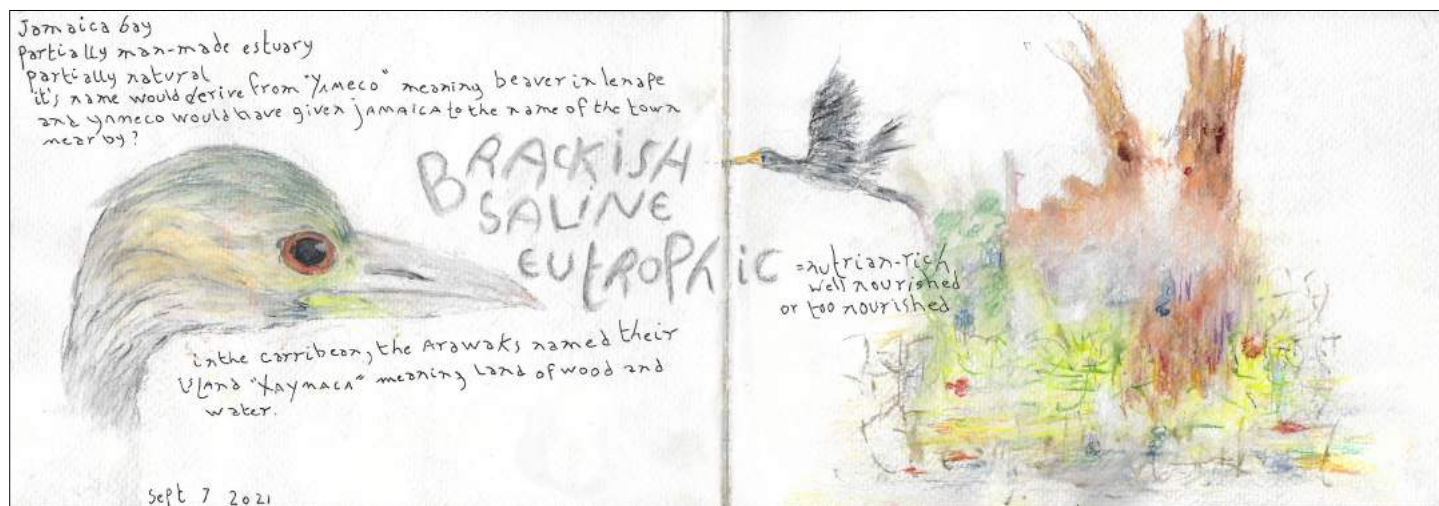 Jamaica bay
partially man-made estuary
partially natural
it's name would derive from "YAMECO" meaning beaver in lenape
and yameco would have given JAMAICA to the name of the town
near by?
BRACKISH
SALINE
EUTROPHIC
=nutrian-rich
well nourished
or too nourished
in the carribean, the Arawaks named their
island "XAYMACA" meaning land of wood and
water.
Sept 7 2021